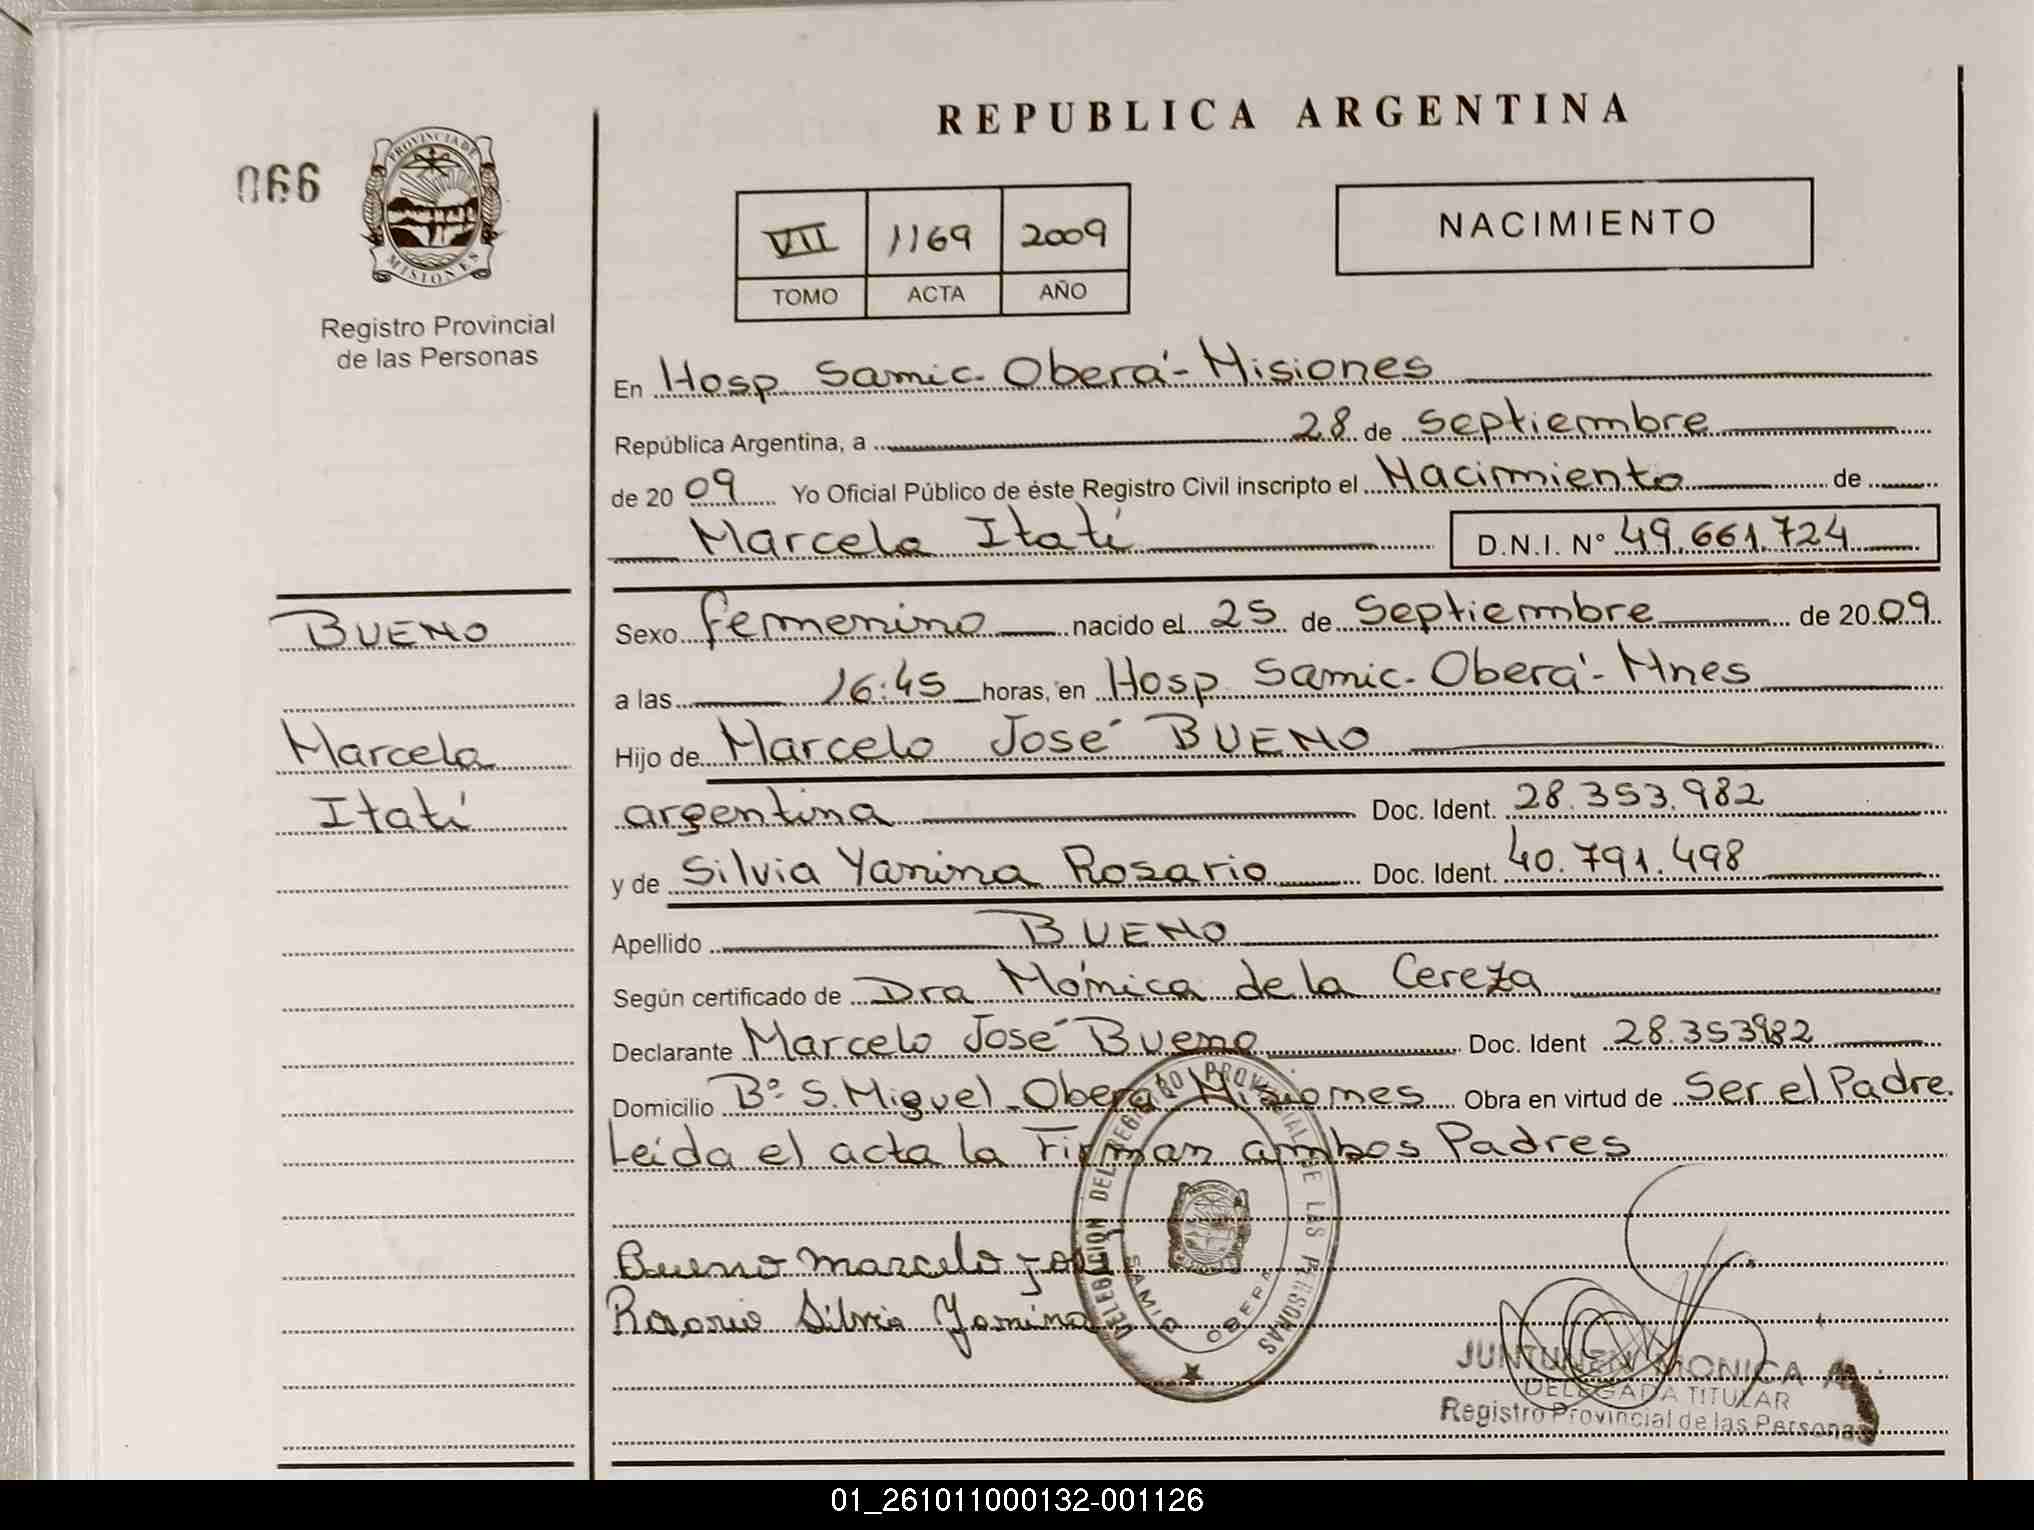 REPUBLICA ARGENTINA
066
PROVINCIA DE
MISIONES
Registro Provincial
de las Personas
VII 1169 2009
TOMO ACTA AÑO
NACIMIENTO
En Hosp Samic- Oberá- Misiones
República Argentina, a 28 de Septiembre
de 20 09 Yo Oficial Público de éste Registro Civil inscripto el Nacimiento de
Marcela Itatí D.N.I. N° 49.661.724
BUENO
Marcela
Itatí
Sexo femenino nacido el 25 de Septiembre de 20 09
a las 16:45 horas, en Hosp Samic- Oberá- Mnes
Hijo de Marcelo José BUENO
argentina Doc. Ident. 28.353.982
y de Silvia Yanina Rosario Doc. Ident. 40.791.498
Apellido BUENO
Según certificado de Dra Mónica de la Cereza
Declarante Marcelo José Bueno Doc. Ident 28.353982
Domicilio B° S. Miguel- Oberá Misiones Obra en virtud de Ser el Padre.
Leída el acta la Firman ambos Padres
Bueno marcelo José
Rosario Silvia Yanina
DELEGACION DEL REGISTRO PROVINCIAL DE LAS PERSONAS
SAMIC OBERA
JUNTUNEN MONICA A.
DELEGADA TITULAR
Registro Provincial de las Personas
01_261011000132-001126